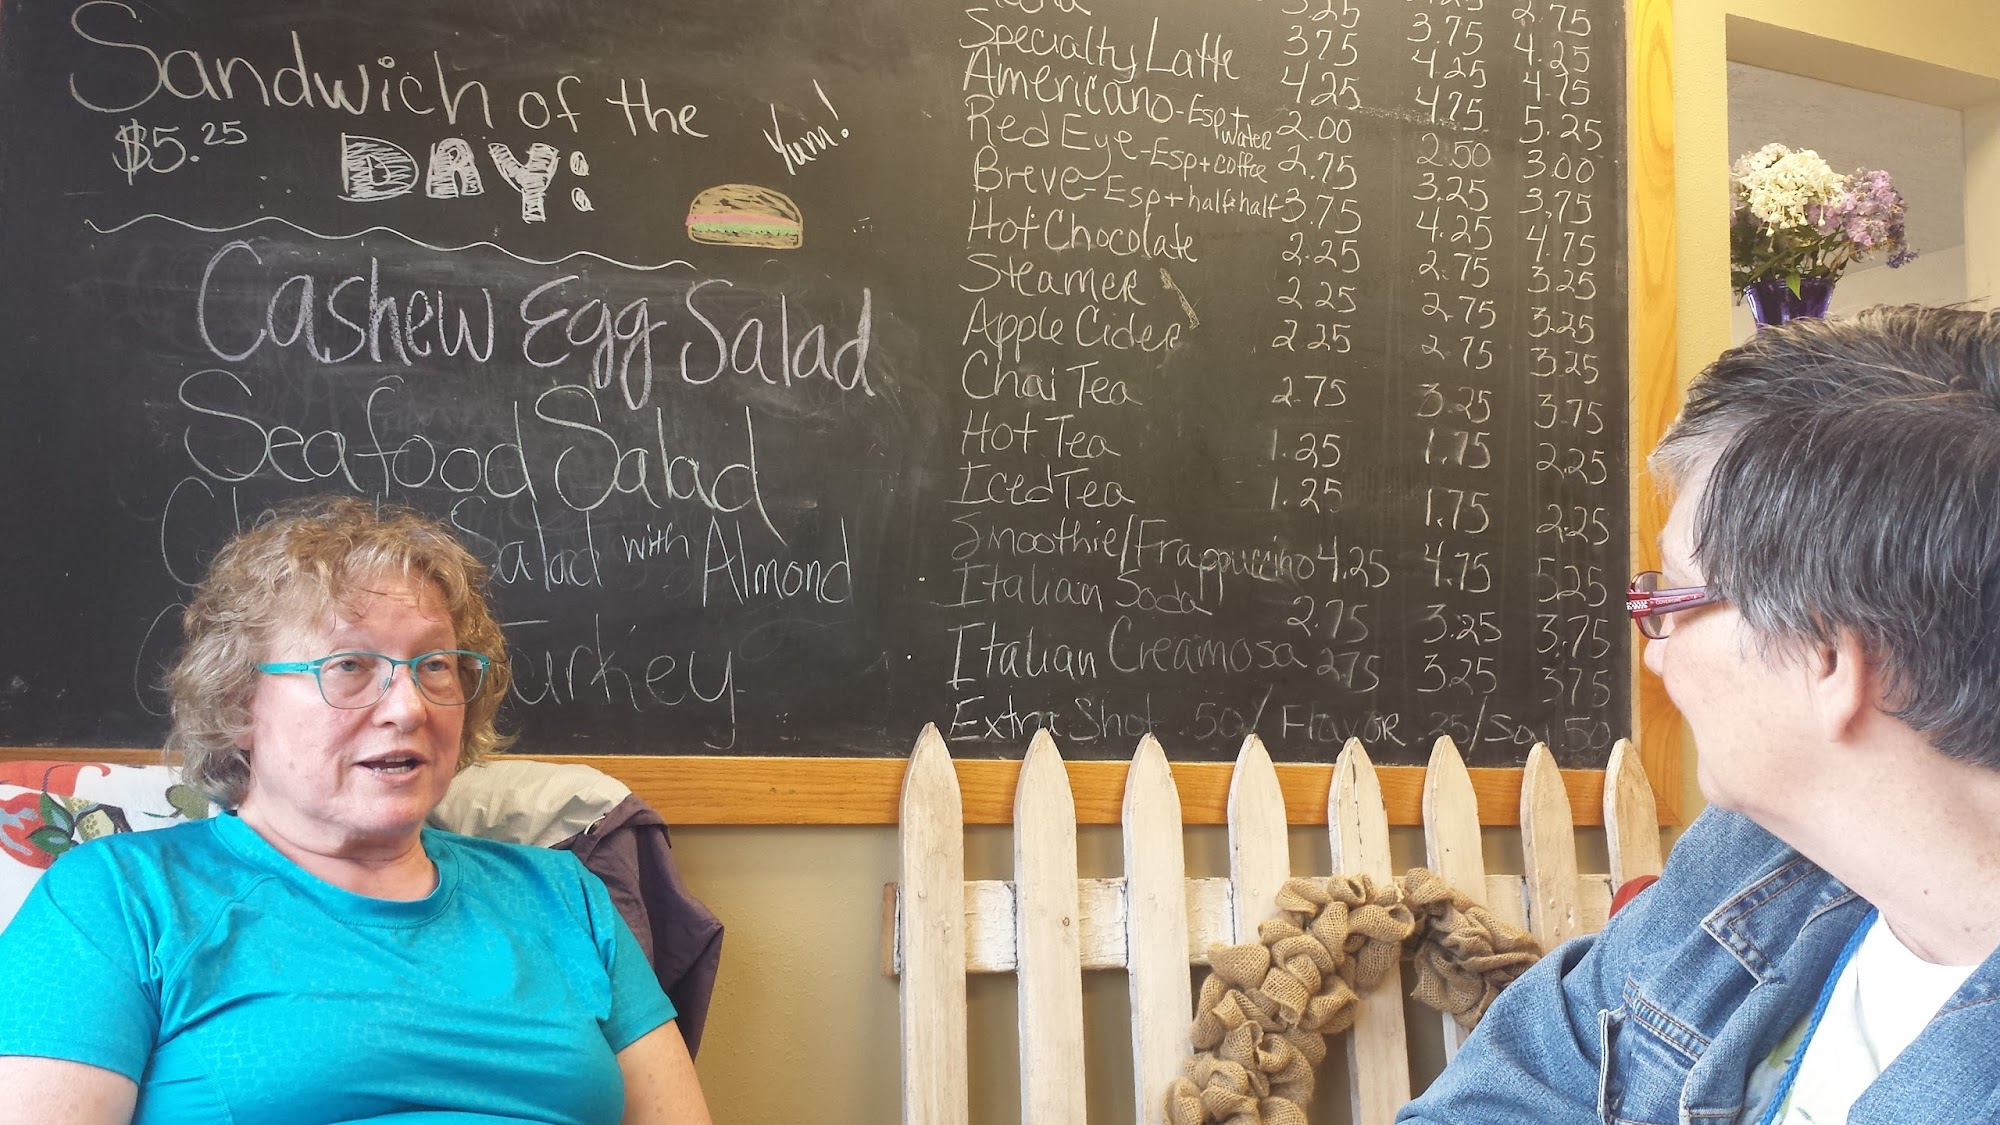 Sandwich of the
$5.25
DAY:
Yum!
Cashew Egg Salad
Seafood Salad
Salad with Almond
Turkey
2.75
3.25 3.75 4.25
3.75 4.25 4.75
Specialty Latte 4.25 4.75 5.25
Americano - Esp + water 2.00 2.50 3.00
Red Eye - Esp + coffee 2.75 3.25 3.75
Breve - Esp + half & half 3.75 4.25 4.75
Hot Chocolate 2.25 2.75 3.25
Steamer 2.25 2.75 3.25
Apple Cider 2.25 2.75 3.25
Chai Tea 2.75 3.25 3.75
Hot Tea 1.25 1.75 2.25
Iced Tea 1.25 1.75 2.25
Smoothie/Frappuccino 4.25 4.75 5.25
Italian Soda 2.75 3.25 3.75
Italian Creamosa 2.75 3.25 3.75
Extra Shot .50/ Flavor .35/Soy .50